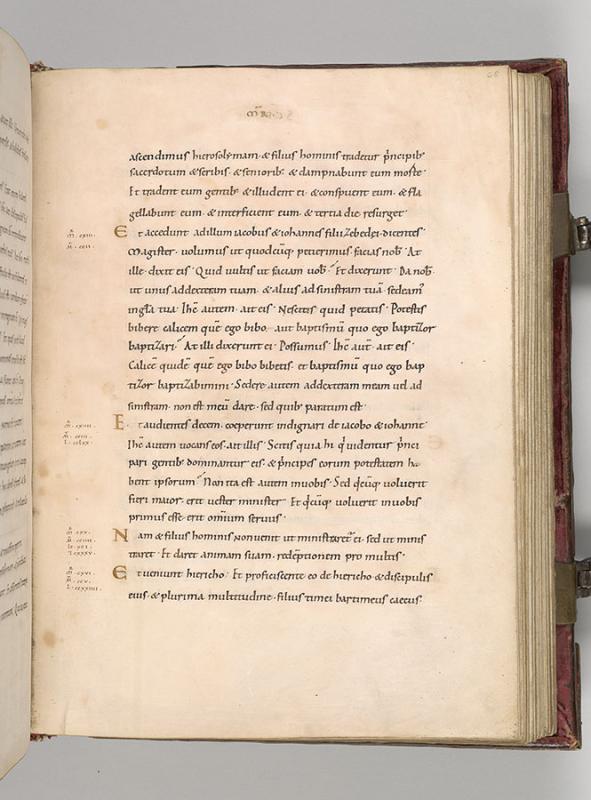 ascendimus hierosolymam. & filius hominis tradetur p̄ncipib;
sacerdotum & scribis & seniorib; & dampnabunt eum morte.
Et tradent eum gentib; & illudent ei. & conspuent eum. & fla
gellabunt eum. & interficient eum. & tertia die resurget.
Et accedunt ad illum iacobus & iohannes filii zebedei. dicentes.
Magister. volumus ut quodcūq; petierimus. facias nob̄. At
ille. dixit eis. Quid vultis ut faciam vob̄. Et dixerunt. Da nob̄.
ut unus ad dexteram tuam. & alius ad sinistram tuā. sedeam'
in gl̄a tua. Ih̄c autem. ait eis. Nescitis quid petatis. Potestis
bibere calicem quē ego bibo. aut baptismū quo ego baptizor
baptizari. At illi dixerunt ei. Possumus. Ih̄c aut̄. ait eis.
Calicē quidē quē ego bibo bibetis. et baptismū quo ego bap
tizor baptizabimini. Sedere autem ad dexteram meam vel ad
sinistram. non est meū dare. sed quib; paratum est.
Et audientes decem. coeperunt indignari de iacobo & iohanne.
Ih̄c autem vocans eos. ait illis. Scitis quia hi q̇ videntur p̄nci
pari gentib; dominantur eis. & p̄ncipes eorum potestatem ha
bent ipsorum. Non ita est autem in vobis. Sed q̇cūq; voluerit
fieri maior. erit vester minister. Et q̇cūq; voluerit in vobis
primus esse. erit omnium servus.
Nam & filius hominis non venit ut ministraretᷣ ei. sed ut minis
traret. Et daret animam suam. redēptionem pro multis.
Et veniunt hiericho. Et proficiscente eo de hiericho. & discipulis
eius. & plurima multitudine. filius timei bartimeus caecus.